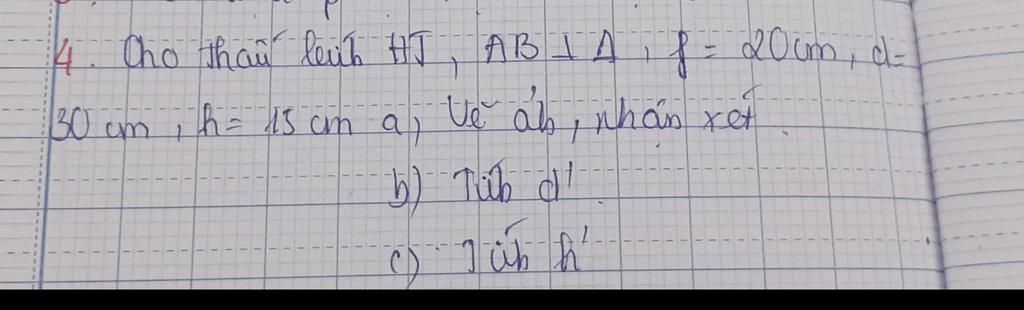 4. Cho thấu kính HT, AB ⊥ Δ, f = 20cm, d =
30 cm, h = 15 cm a, Vẽ ảh, nhận xét.
b) Tíh d'
c) Tíh h'